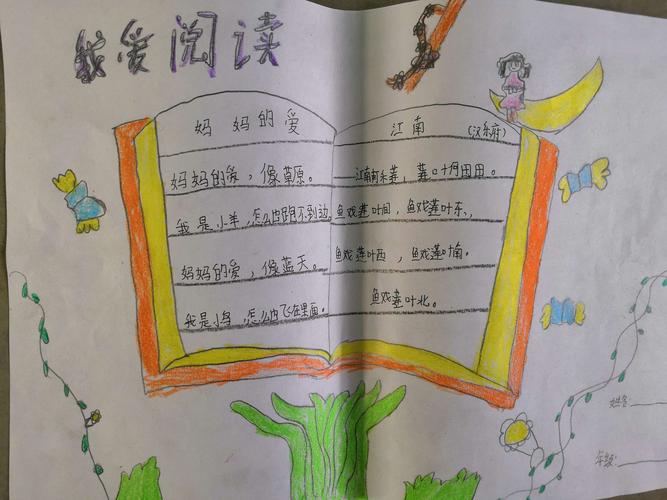 我爱阅读
妈妈的爱
妈妈的爱，像草原。
我是小羊，怎么也跑不到边。
妈妈的爱，像蓝天。
我是小鸟，怎么也飞在里面。
江南 （汉乐府）
江南可采莲，莲叶何田田。
鱼戏莲叶间，鱼戏莲叶东，
鱼戏莲叶西，鱼戏莲叶南，
鱼戏莲叶北。
姓名：
年级：